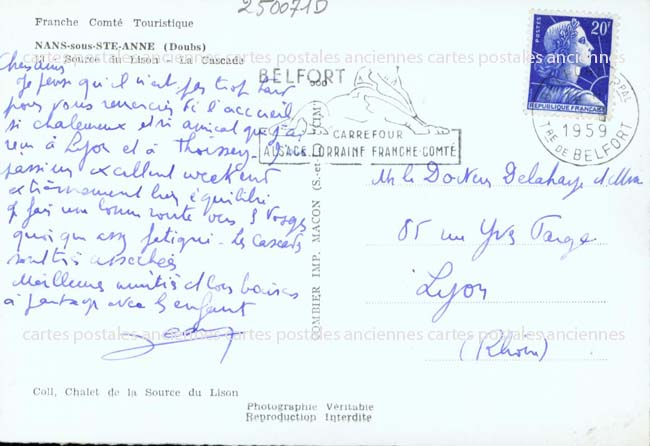 250071D
Franche Comté Touristique
NANS-sous-STE-ANNE (Doubs)
Source du Lison - La Cascade
Chers amis
Je pense qu'il n'est pas trop tard
pour vous remercier de l'accueil
si chaleureux et si amical que j'ai
reçu à Lyon et à Thoissey.
passé un excellent weekend
extrêmement bien équilibré.
J'ai fait une bonne route vers les Vosges
quoique assez fatigué. Les Cascades
sont très asséchées
Meilleures amitiés et bons baisers
à partager avec les enfants
Coll, Chalet de la Source du Lison
COMBIER IMP. MACON (S.-et-L.)
Photographie Véritable
Reproduction Interdite
BELFORT
CARREFOUR
ALSACE-LORRAINE FRANCHE-COMTÉ
20F
POSTES
REPUBLIQUE FRANÇAISE
1959
TRE DE BELFORT
Mr le Docteur Delahaye et Mme
85 rue Yves Farge
Lyon
(Rhône)
cartes postales anciennes cartes postales anciennes cartes postales anciennes
cartes postales anciennes cartes postales anciennes cartes postales anciennes